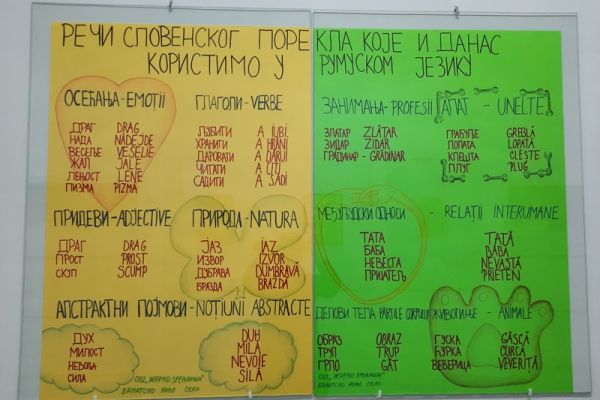 РЕЧИ СЛОВЕНСКОГ ПОРЕКЛА КОЈЕ И ДАНАС
КОРИСТИМО У РУМУСКОМ ЈЕЗИКУ
ОСЕЋАЊА-EMOȚII
ДРАГ DRAG
НАДА NĂDEJDE
ВЕСЕЉЕ VESELIE
ЖАЛ JALE
ЛЕЊОСТ LENE
ПИЗМА PIZMA
ГЛАГОЛИ-VERBE
ЉУБИТИ A IUBI
ХРАНИТИ A HRĂNI
ДАРОВАТИ A DĂRUI
ЧИТАТИ A CITI
САДИТИ A SĂDI
ПРИДЕВИ-ADJECTIVE
ДРАГ DRAG
ПРОСТ PROST
СКУП SCUMP
ПРИРОДА-NATURA
ЈАЗ IAZ
ИЗВОР IZVOR
ДУБРАВА DUMBRAVĂ
БРАЗДА BRAZDA
АПСТРАКТНИ ПОЈМОВИ-NOȚIUNI ABSTRACTE
ДУХ DUH
МИЛОСТ MILĂ
НЕВОЉА NEVOIE
СИЛА SILĂ
ОШ „ЖАРКО ЗРЕЊАНИН"
БАНАТСКО НОВО СЕЛО
ЗАНИМАЊА-PROFESII
ЗЛАТАР ZLĂTAR
ЗИДАР ZIDAR
ГРАДИНАР-GRĂDINAR
АЛАТ - UNELTE
ГРАБУЉЕ GREBLĂ
ЛОПАТА LOPATA
КЛЕШТА CLEȘTE
ПЛУГ PLUG
МЕЂУЉУДСКИ ОДНОСИ - RELAȚII INTERUMANE
ТАТА TATĂ
БАБА BABA
НЕВЕСТА NEVASTĂ
ПРИЈАТЕЉ PRIETEN
ДЕЛОВИ ТЕЛА PĂRȚILE CORPULUI
ОБРАЗ OBRAZ
ТРУП TRUP
ГРЛО GÂT
ЖИВОТИЊЕ - ANIMALE
ГУСКА GÂSCĂ
ЋУРКА CURCĂ
ВЕВЕРИЦА VEVERIȚĂ
ОШ „ЖАРКО ЗРЕЊАНИН"
БАНАТСКО НОВО СЕЛО